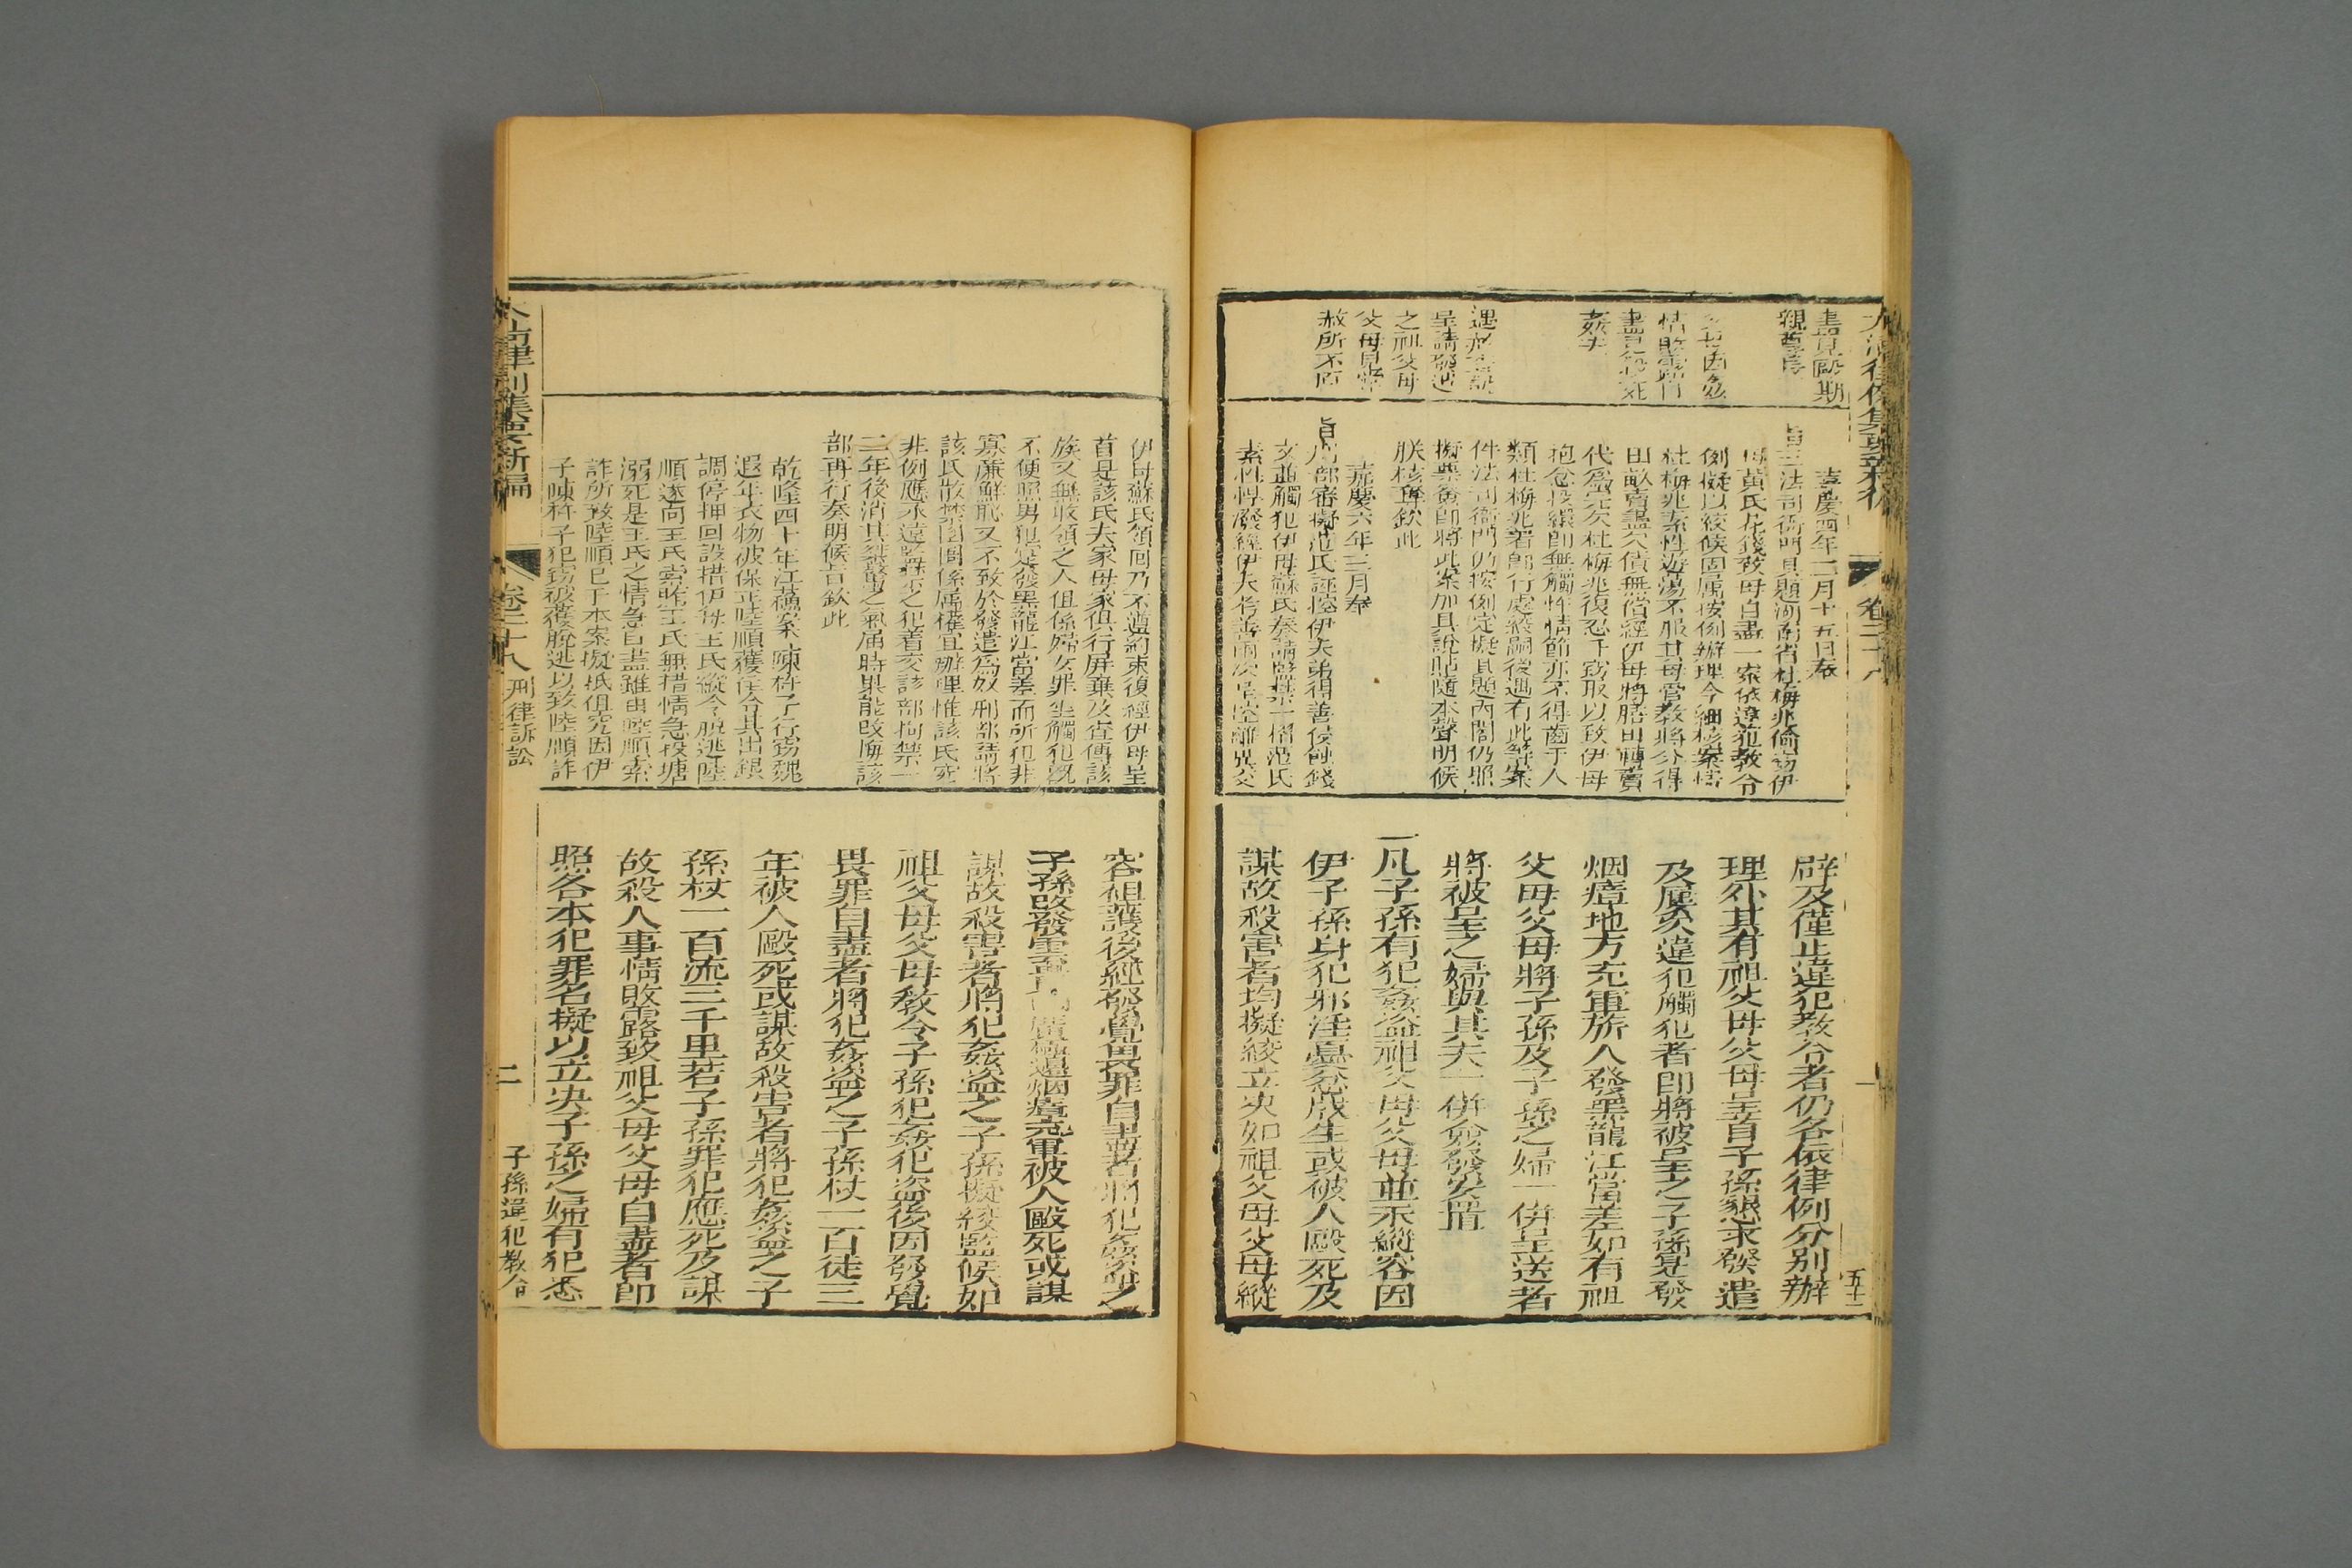 五十一
盡見毆期
親尊長
情敗露自
盡已經死
姦夫
呈請發遣
之祖父母
父母已
赦所不原
嘉慶四年二月十五日奉
旨三法司衙門具題湖南省杜梅兆偷竊伊
母黃氏花錢致母自盡一案依違犯教令
例擬以絞候固屬按例辦理今細核案情
杜梅兆素性遊蕩不服其母管教將分得
田畝賣盡欠債無償經伊母將膳田轉賣
代爲完欠杜梅兆復忍于竊取以致伊母
抱忿投繯卽無觸忤情節亦不得齒于人
類杜梅兆著卽行處絞嗣後遇有此等案
件法司衙門仍按例定擬具題內閣仍照
擬票簽卽將此案加具說帖隨本聲明候
朕核奪欽此
嘉慶六年三月奉
旨刑部審擬范氏誣控伊夫弟得善侵蝕錢
文並觸犯伊母蘇氏奏請監禁一摺范氏
素性悍潑經伊夫佟善兩次呈控離異交
辟及僅止違犯教令者仍各依律例分别辦
理外其有祖父母父母呈首子孫懇求發遣
及屢次違犯觸犯者卽將被呈之子孫寔發
烟瘴地方充軍旂人發黑龍江當差如有祖
父母父母將子孫及子孫之婦一併呈送者
將被呈之婦與其夫一併僉發安置
一凡子孫有犯姦盜祖父母父母並未縱容因
伊子孫身犯邪淫憂忿戕生或被人毆死及
謀故殺害者均擬絞立決如祖父母父母縱
伊母蘇氏領回乃不遵約束復經伊母呈
首是該氏夫家母家俱行屏棄及查傳該
族又無收領之人但係婦女罪坐觸犯旣
不便照男犯寔發黑龍江當差而所犯非
寡廉鮮恥又不致於發遣爲奴刑部請將
該氏散禁囹圄係屬權宜辦理惟該氏究
非例應永遠監禁之犯着交該部拘禁一
二年後消其桀驁之氣屆時果能改悔該
部再行奏明候旨欽此
乾隆四十年江蘇案陳科子行竊魏
遐年衣物被保正陸順獲住令其出銀
調停押回設措伊母王氏縱令脫逃陸
順遂向王氏索詐王氏無措情急投塘
溺死是王氏之情急自盡雖由陸順索
詐所致陸順已于本案擬抵但究因伊
子陳科子犯竊被獲脫逃以致陸順詐
容袒護後經發覺畏罪自盡者將犯姦盜之
子孫改發雲貴兩廣極邊烟瘴充軍被人毆死或謀
謀故殺害者將犯姦盜之子孫擬絞監候如
祖父母父母教令子孫犯姦犯盜後因發覺
畏罪自盡者將犯姦盜之子孫杖一百徒三
年被人毆死或謀故殺害者將犯姦盜之子
孫杖一百流三千里若子孫罪犯應死及謀
故殺人事情敗露致祖父母父母自盡者卽
照各本犯罪名擬以立決子孫之婦有犯悉
大淸律例集要新編
卷二十八
刑律訴訟
二
子孫違犯教令